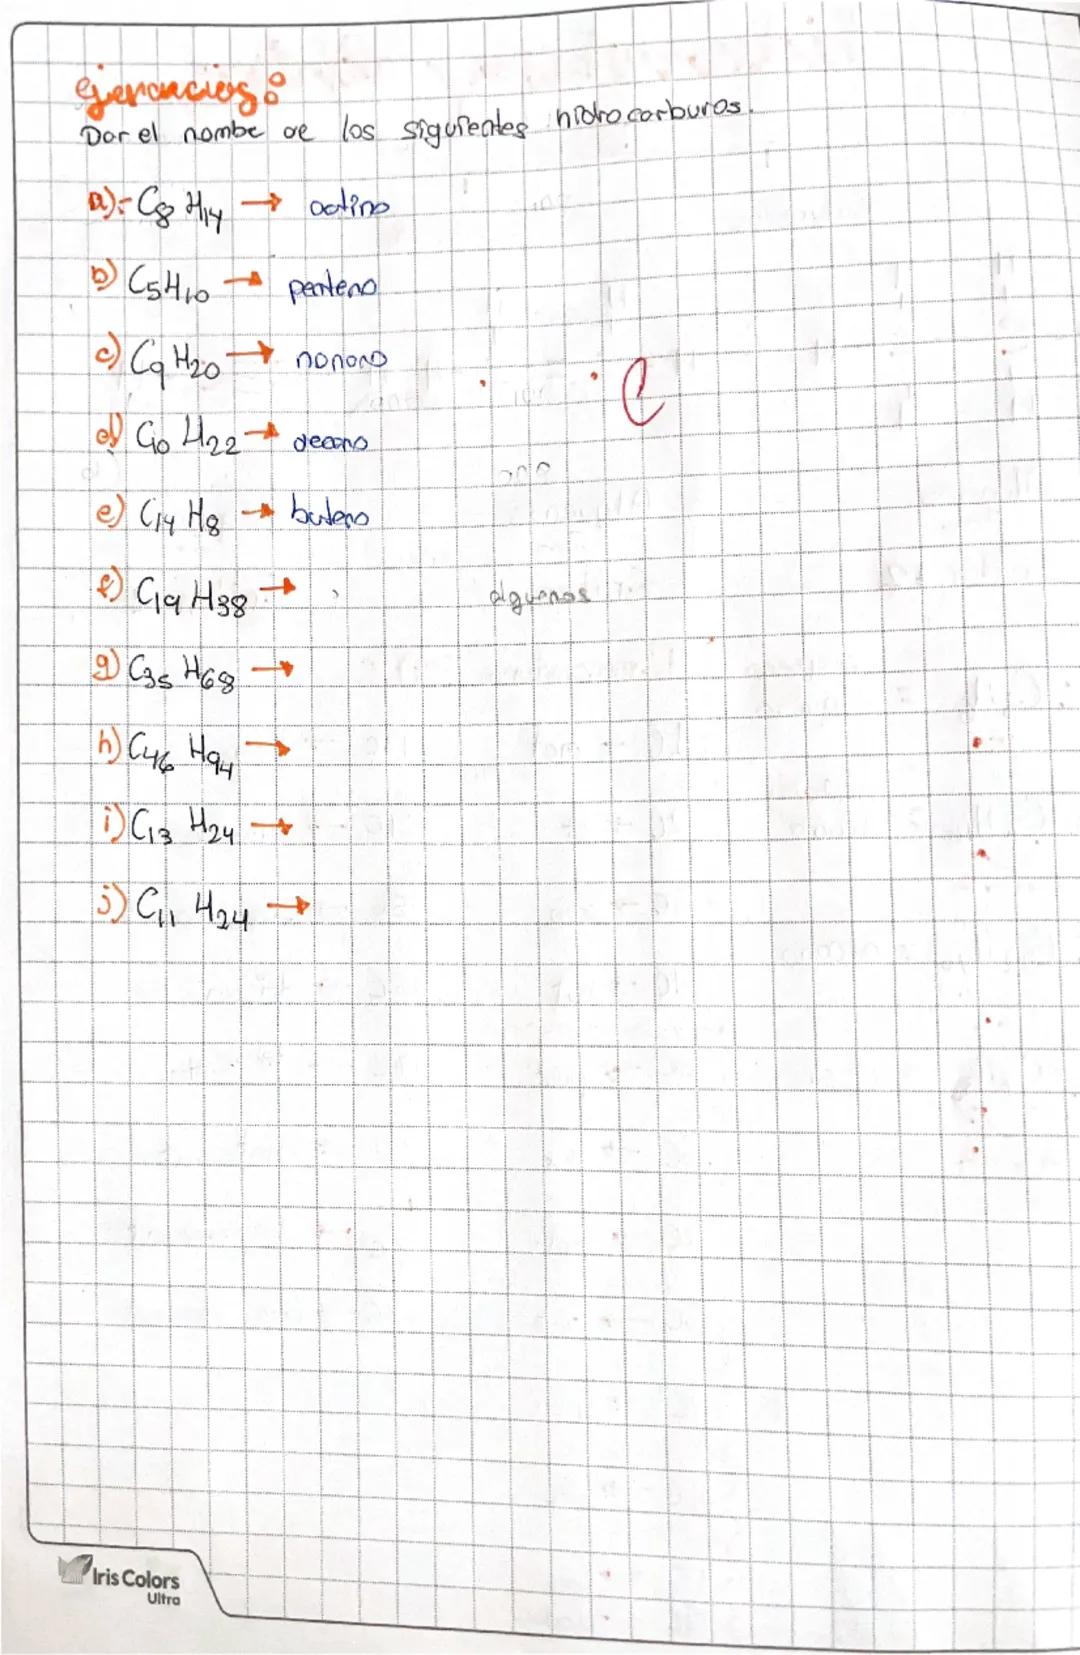 ejercicios:
Dar el nombe de los siguientes hidrocarburos.
a).- C8 H14 → octino
b) C5H10 → penteno
c) C9 H20 → nonano
d) C10 H22 → decano
e) C14 H8 → buteno
f) C19 H38 →
alguenos
g) C35 H68 →
h) C46 H94 →
i) C13 H24 →
j) C11 H24 →
Iris Colors
Ultra